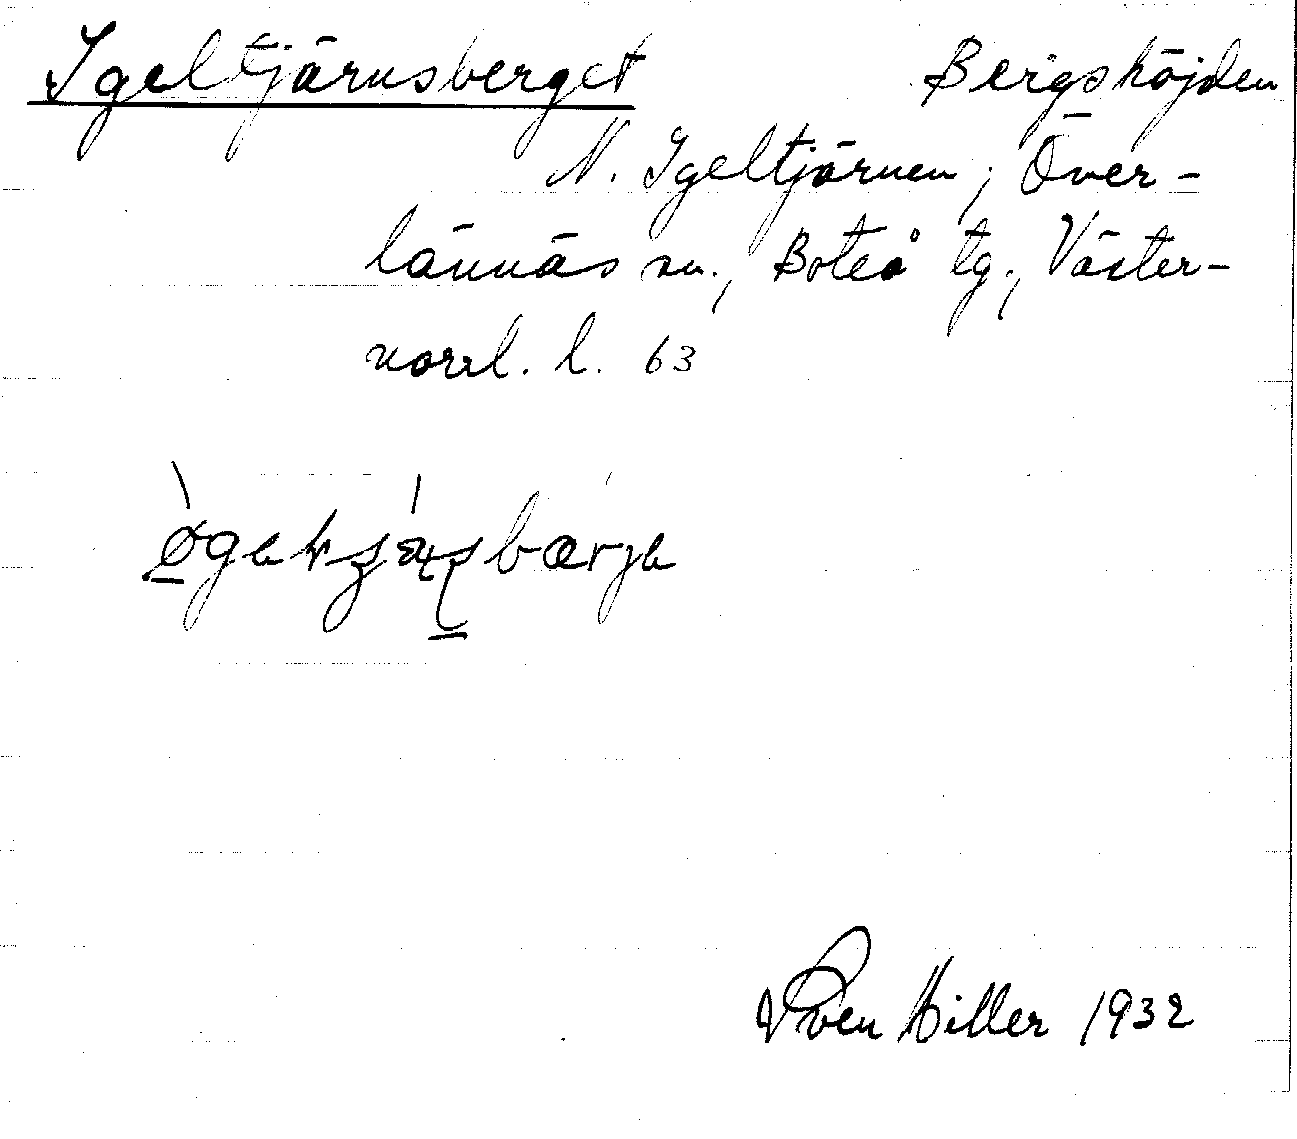 Igeltjärnsberget Bergshöjden
N. Igeltjärnen, Över-
lännäs sn., Boteå tg., Väster-
norrl. l. 63
Sven Hiller 1932